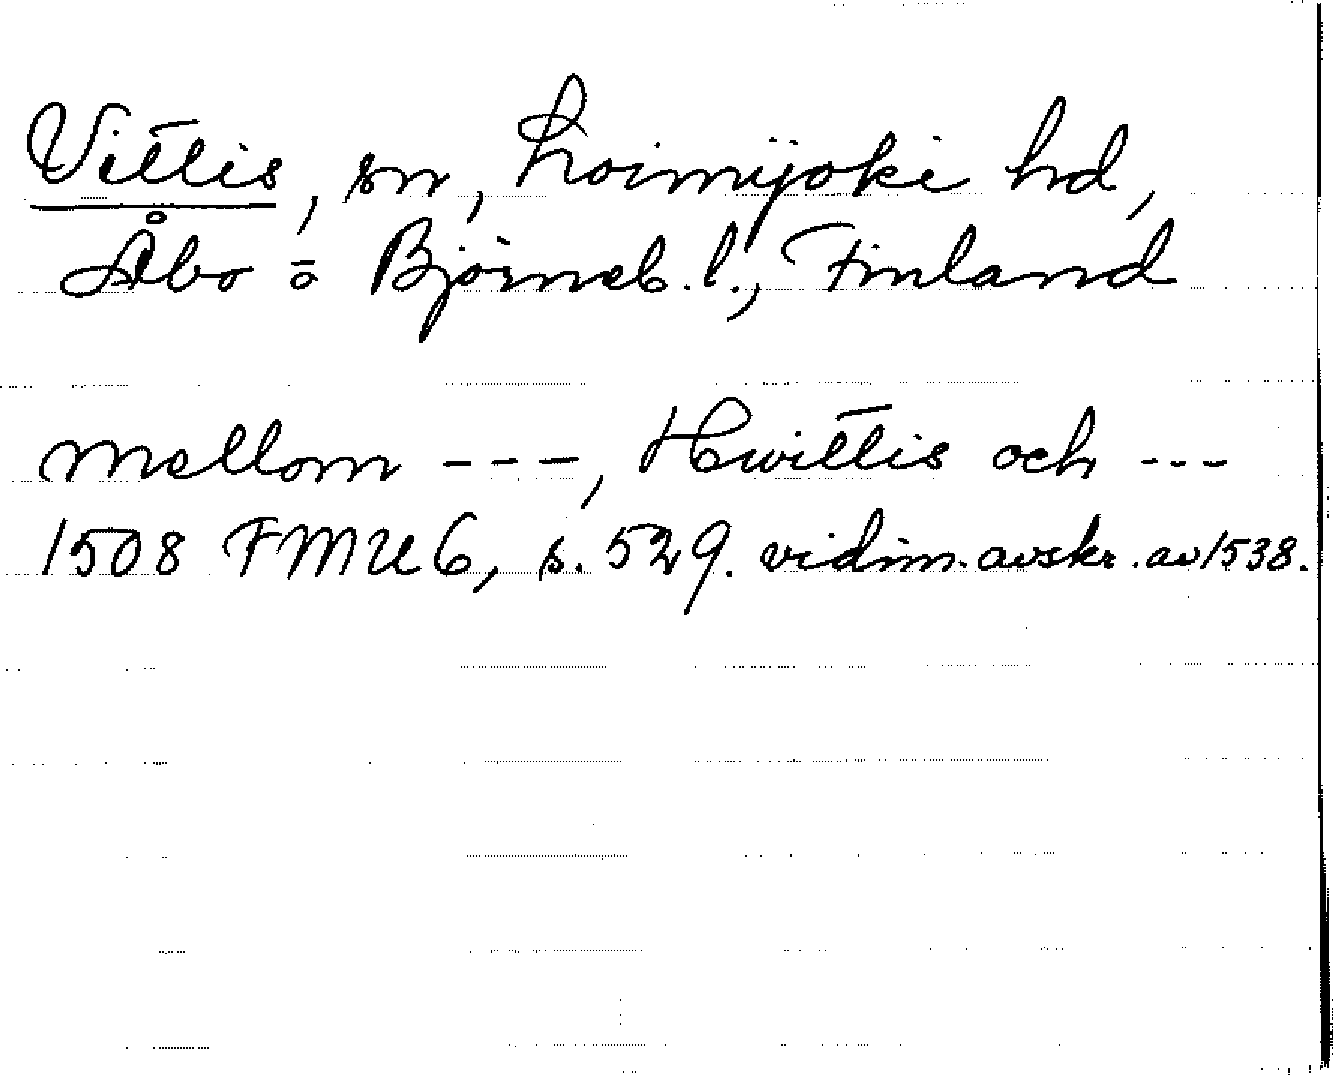 Vittis, sn, Loimijoki hd,
Åbo o Björneb. l., Finland
mellom ---, Hwittis och ---
1508 FMU 6, s. 529. vidim. avskr. av 1538.